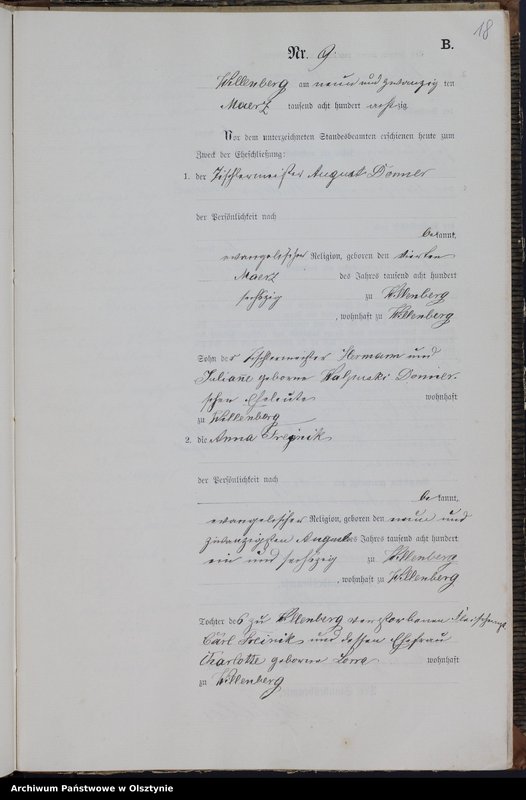 18
B.
Nr. 9
Willenberg am neun und zwanzig ten
Maerz tausend acht hundert acht zig.
Vor dem unterzeichneten Standesbeamten erschienen heute zum
Zweck der Eheschließung:
1. der Tischlermeister August Donner
der Persönlichkeit nach
be kannt,
evangelischer Religion, geboren den vierten
Maerz des Jahres tausend acht hundert
sechszig zu Willenberg
, wohnhaft zu Willenberg
Sohn der Tischlermeister Hermann und
Juliane geborne Donner-
schen Eheleute wohnhaft
zu Willenberg
2. die Anna
der Persönlichkeit nach
be kannt,
evangelischer Religion, geboren den neun und
zwanzigsten August des Jahres tausend acht hundert
ein und sechszig zu Willenberg
, wohnhaft zu Willenberg
Tochter des zu Willenberg verstorbenen
Carl und dessen Ehefrau
Charlotte geborene wohnhaft
zu Willenberg
Archiwum Państwowe w Olsztynie